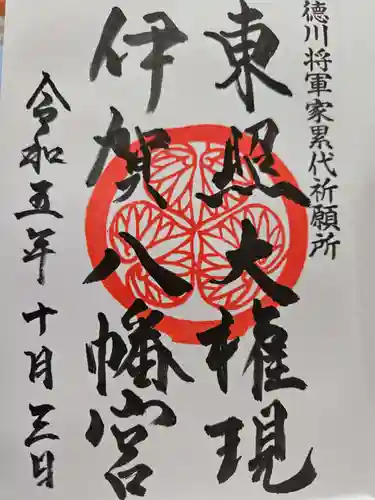 徳川将軍家累代祈願所
東照大権現
伊賀八幡宮
令和五年十月三日